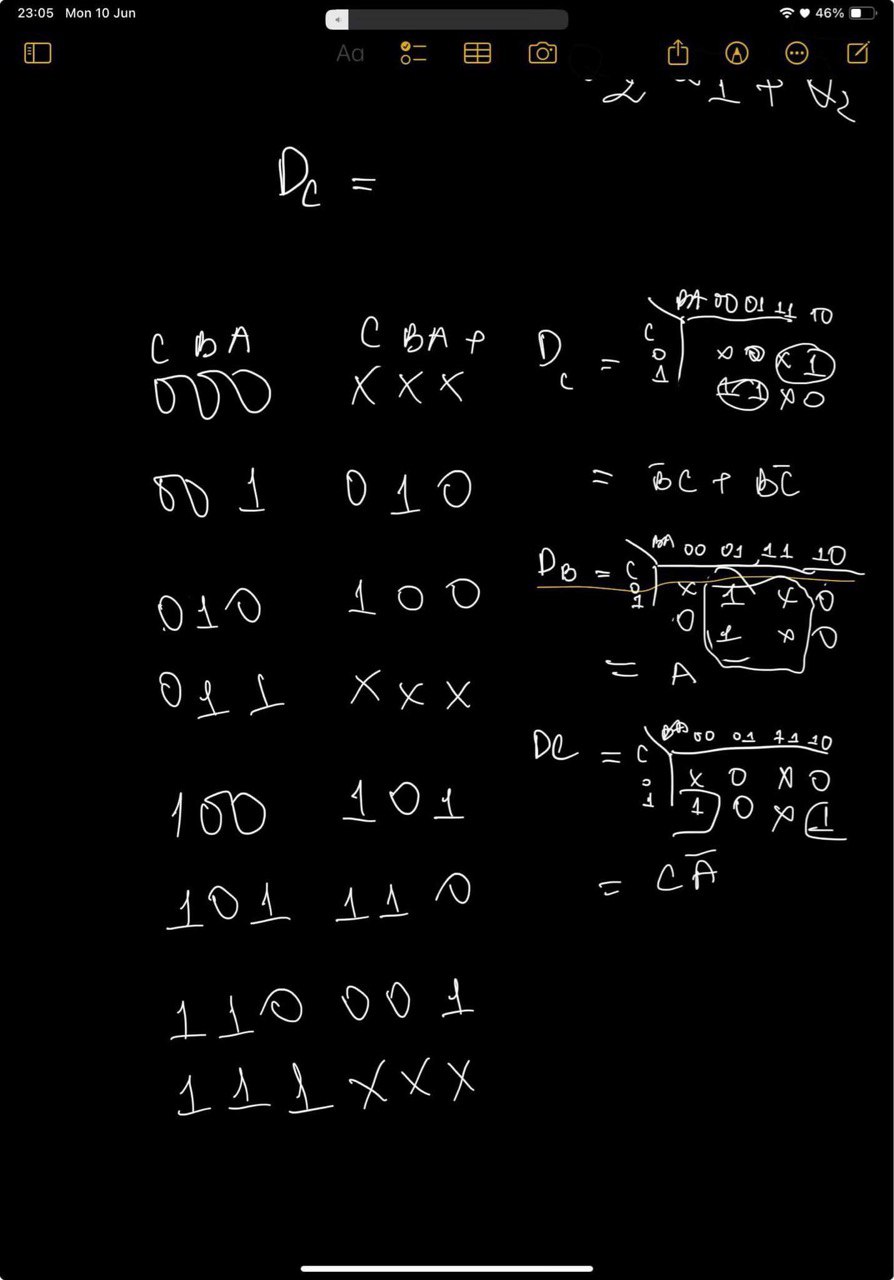 23:05 Mon 10 Jun 46%
Aa
2 1 + 2
D_C =
C B A C B A +
000 X X X
001 0 1 0
010 1 0 0
011 X X X
100 1 0 1
101 1 1 0
110 0 0 1
111 X X X
D_C = C BA 00 01 11 10
0 X 0 X 1
1 1 1 X 0
= B̅C + BC̅
D_B = C BA 00 01 11 10
0 X 1 X 0
1 0 1 X 0
= A
DC = C BA 00 01 11 10
0 X 0 X 0
1 1 0 X 1
= CA̅